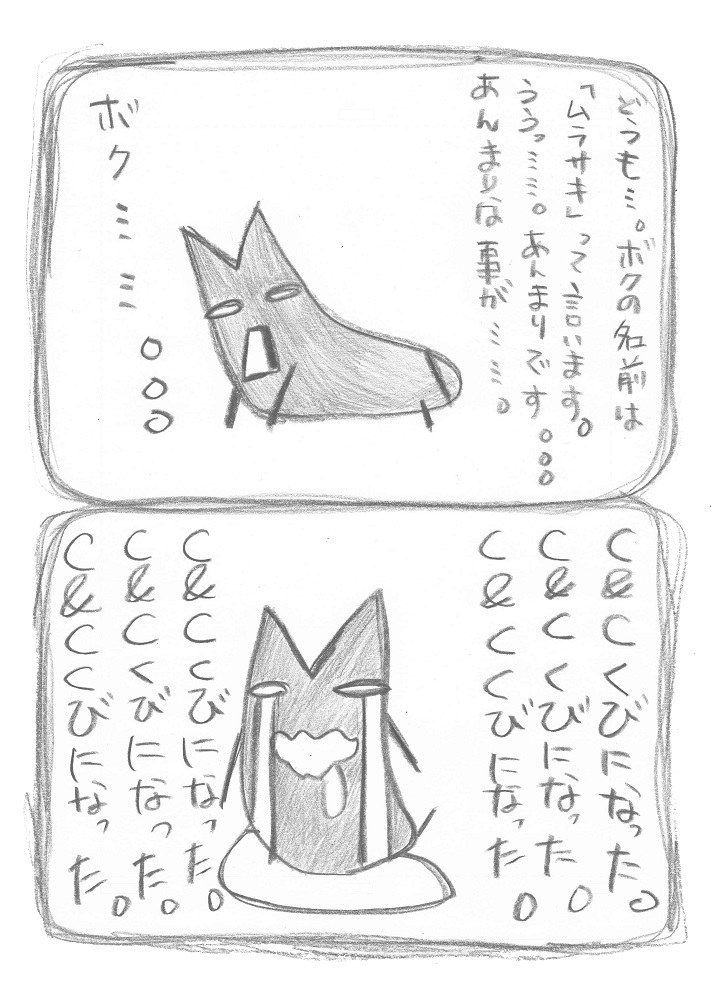 どうもミ。ボクの名前は
「ムラサキ」って言います。
ううっミミ。あんまりです。。。
あんまりな事がミミ。
ボクミミ。。。
C&Cくびになった。
C&Cくびになった。
C&Cくびになった。
C&Cくびになった。
C&Cくびになった。
C&Cくびになった。